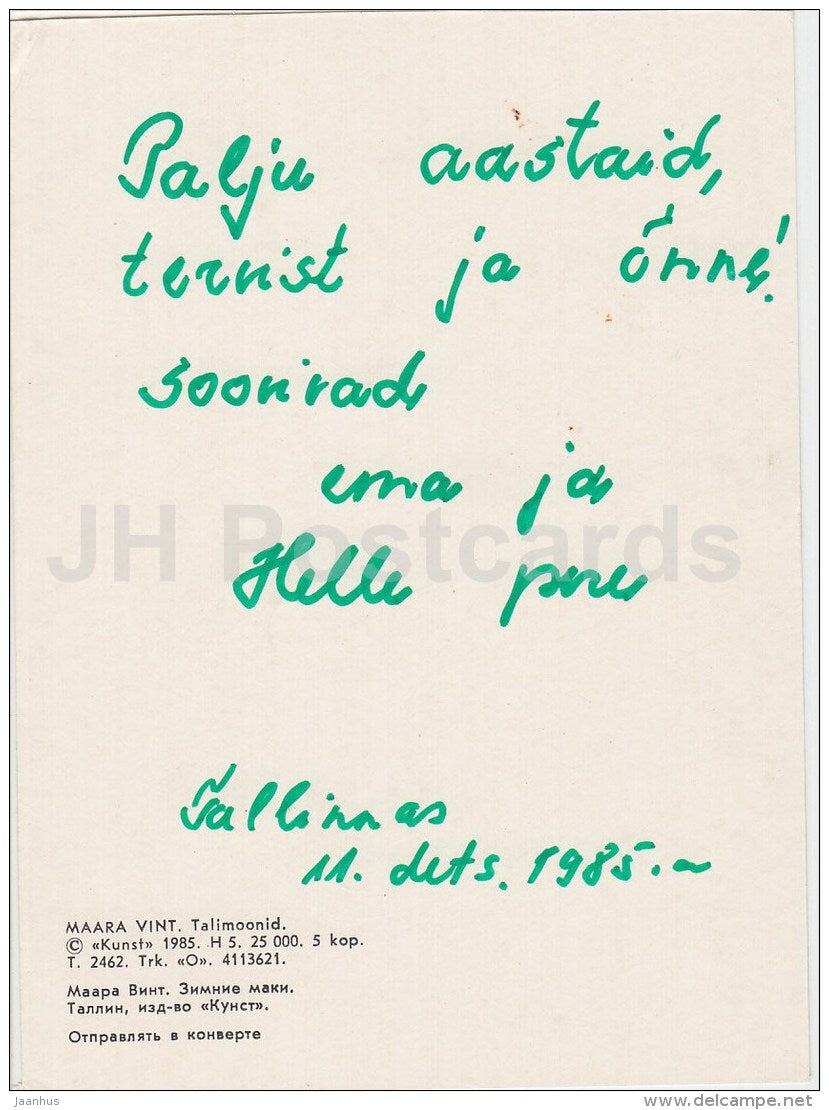 Palju aastaid,
tervist ja õnne!
soovivad
ema ja
Helle pere
Tallinnas
11. dets. 1985.a
MAARA VINT. Talimoonid.
© «Kunst» 1985. H 5. 25 000. 5 kop.
T. 2462. Trk. «O». 4113621.
Маара Винт. Зимние маки.
Таллин, изд-во «Кунст».
Отправлять в конверте
JH Postcards
jaanhus
www.delcampe.net